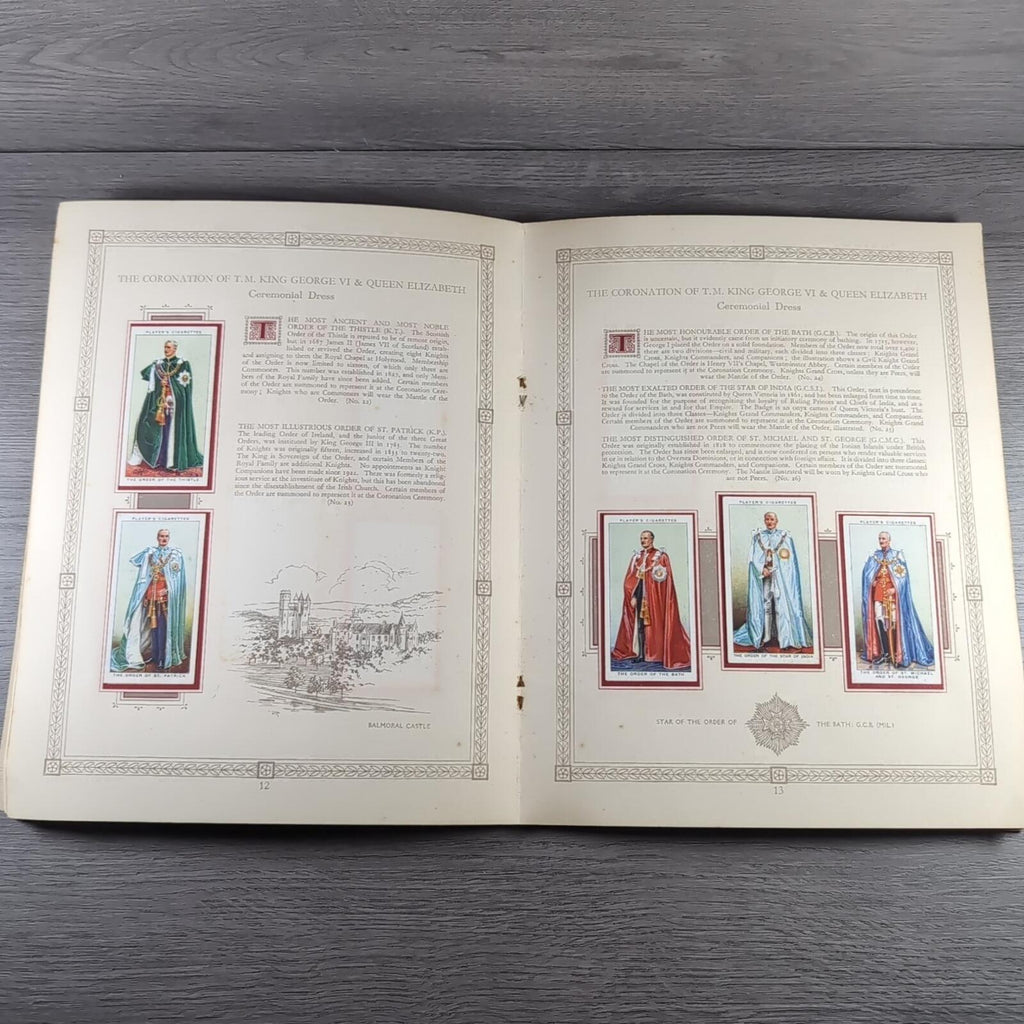 THE CORONATION OF T.M. KING GEORGE VI & QUEEN ELIZABETH
Ceremonial Dress
THE MOST ANCIENT AND MOST NOBLE
ORDER OF THE THISTLE (K.T.). The Scottish
Order of the Thistle is reputed to be of remote origin,
but in 1687 James II (James VII of Scotland) estab-
lished or revived the Order, creating eight Knights
and assigning to them the Royal Chapel at Holyrood. Membership
of the Order is now limited to sixteen, of which only three are
Commoners. This number was established in 1827, and only Mem-
bers of the Royal Family have since been added. Certain members
of the Order are summoned to represent it at the Coronation Cere-
mony; Knights who are Commoners will wear the Mantle of the
Order. (No. 22)
THE MOST ILLUSTRIOUS ORDER OF ST. PATRICK (K.P.).
The leading Order of Ireland, and the junior of the three Great
Orders, was instituted by King George III in 1783. The number
of Knights was originally fifteen, increased in 1833 to twenty-two.
The King is Sovereign of the Order, and certain Members of the
Royal Family are additional Knights. No appointments as Knight
Companions have been made since 1922. There was formerly a relig-
ious service at the investiture of Knights, but this has been abandoned
since the disestablishment of the Irish Church. Certain members of
the Order are summoned to represent it at the Coronation Ceremony.
(No. 23)
PLAYER'S CIGARETTES
THE ORDER OF THE THISTLE
PLAYER'S CIGARETTES
THE ORDER OF ST. PATRICK
BALMORAL CASTLE
12
THE CORONATION OF T.M. KING GEORGE VI & QUEEN ELIZABETH
Ceremonial Dress
THE MOST HONOURABLE ORDER OF THE BATH (G.C.B.). The origin of this Order
is uncertain, but it evidently came from an initiatory ceremony of bathing. In 1725, however,
George I placed the Order on a solid foundation. Members of the Order now total over 1,400;
there are two divisions—civil and military, each divided into three classes; Knights Grand
Cross, Knights Commanders, and Companions; the illustration shows a Civil Knight Grand
Cross. The Chapel of the Order is Henry VII's Chapel, Westminster Abbey. Certain members of the Order
are summoned to represent it at the Coronation Ceremony. Knights Grand Cross, unless they are Peers, will
wear the Mantle of the Order. (No. 24)
THE MOST EXALTED ORDER OF THE STAR OF INDIA (G.C.S.I.). This Order, next in precedence
to the Order of the Bath, was constituted by Queen Victoria in 1861, and has been enlarged from time to time.
It was founded for the purpose of recognising the loyalty of Ruling Princes and Chiefs of India, and as a
reward for services in and for that Empire. The Badge is an onyx cameo of Queen Victoria's bust. The
Order is divided into three Classes—Knights Grand Commanders, Knights Commanders, and Companions.
Certain members of the Order are summoned to represent it at the Coronation Ceremony. Knights Grand
Commanders who are not Peers will wear the Mantle of the Order, illustrated. (No. 25)
THE MOST DISTINGUISHED ORDER OF ST. MICHAEL AND ST. GEORGE (G.C.M.G.). This
Order was originally established in 1818 to commemorate the placing of the Ionian Islands under British
protection. The Order has since been enlarged, and is now conferred on persons who render valuable services
in or in relation to the Oversea Dominions, or in connection with foreign affairs. It is divided into three classes:
Knights Grand Cross, Knights Commanders, and Companions. Certain members of the Order are summoned
to represent it at the Coronation Ceremony. The Mantle illustrated will be worn by Knights Grand Cross who
are not Peers. (No. 26)
PLAYER'S CIGARETTES
THE ORDER OF THE BATH
PLAYER'S CIGARETTES
THE ORDER OF THE STAR OF INDIA
PLAYER'S CIGARETTES
THE ORDER OF ST. MICHAEL
AND ST. GEORGE
STAR OF THE ORDER OF THE BATH: G.C.B. (MIL.)
13